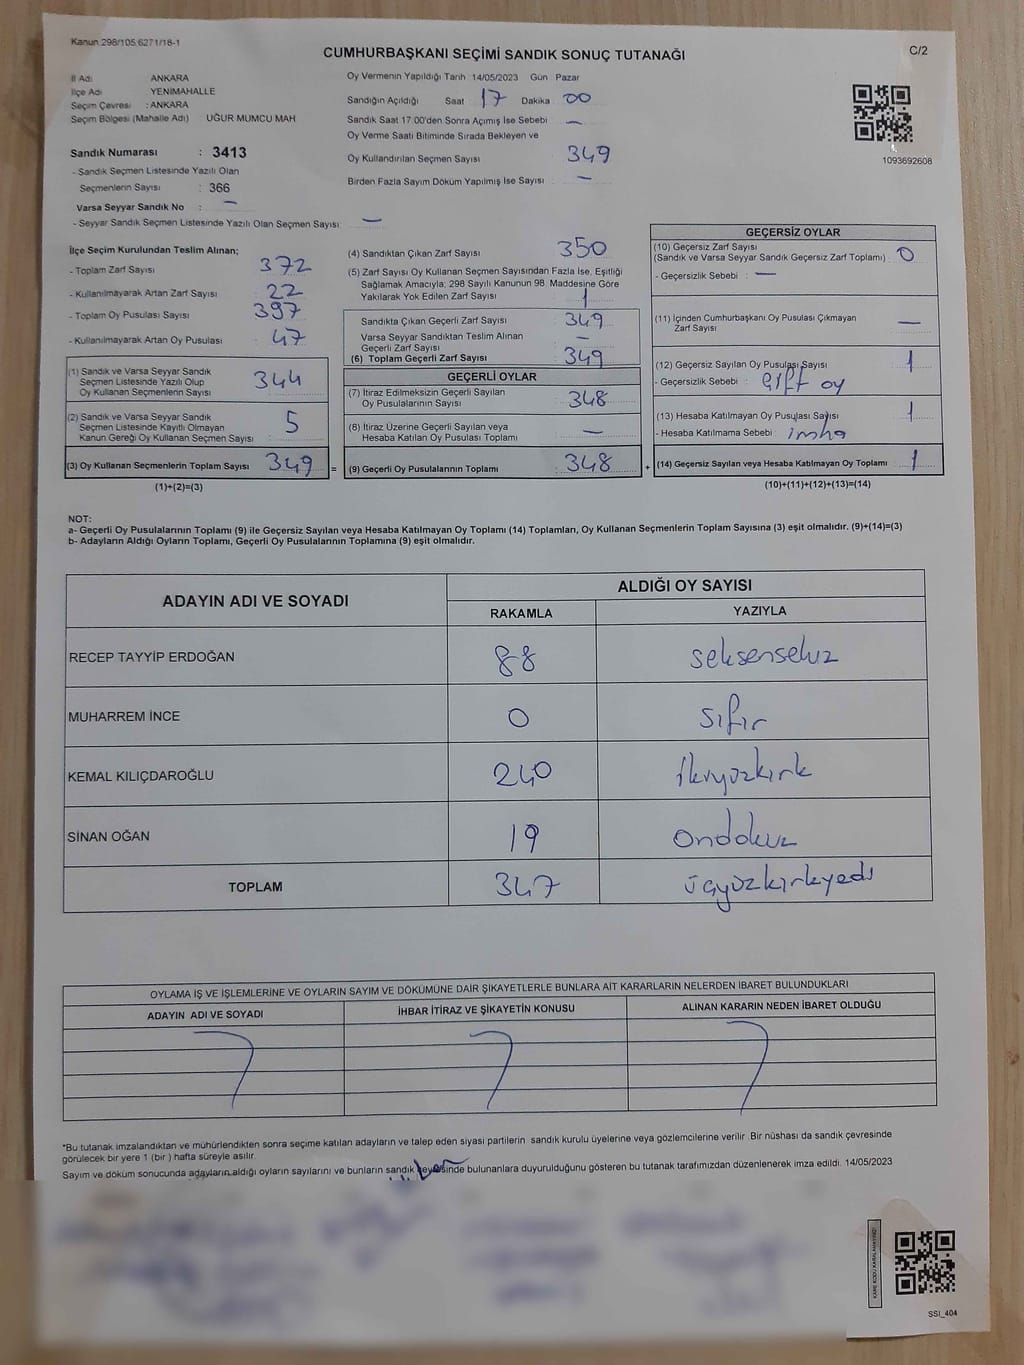 Kanun 298/105,6271/18-1
CUMHURBAŞKANI SEÇİMİ SANDIK SONUÇ TUTANAĞI
C/2
İl Adı ANKARA
İlçe Adı YENİMAHALLE
Seçim Çevresi : ANKARA
Seçim Bölgesi (Mahalle Adı) UĞUR MUMCU MAH
Oy Vermenin Yapıldığı Tarih 14/05/2023 Gün Pazar
Sandığın Açıldığı Saat 17 Dakika 00
Sandık Saat 17:00'den Sonra Açımış İse Sebebi —
Oy Verme Saati Bitiminde Sırada Bekleyen ve
Oy Kullandırılan Seçmen Sayısı 349
Birden Fazla Sayım Döküm Yapılmış İse Sayısı —
1093692608
Sandık Numarası : 3413
- Sandık Seçmen Listesinde Yazılı Olan
Seçmenlerin Sayısı : 366
Varsa Seyyar Sandık No : —
- Seyyar Sandık Seçmen Listesinde Yazılı Olan Seçmen Sayısı —
İlçe Seçim Kurulundan Teslim Alınan;
- Toplam Zarf Sayısı 372
- Kullanılmayarak Artan Zarf Sayısı 22
- Toplam Oy Pusulası Sayısı 397
- Kullanılmayarak Artan Oy Pusulası 47
(1) Sandık ve Varsa Seyyar Sandık
Seçmen Listesinde Yazılı Olup
Oy Kullanan Seçmenlerin Sayısı 344
(2) Sandık ve Varsa Seyyar Sandık
Seçmen Listesinde Kayıtlı Olmayan
Kanun Gereği Oy Kullanan Seçmen Sayısı 5
(3) Oy Kullanan Seçmenlerin Toplam Sayısı 349 =
(1)+(2)=(3)
(4) Sandıktan Çıkan Zarf Sayısı 350
(5) Zarf Sayısı Oy Kullanan Seçmen Sayısından Fazla İse, Eşitliği
Sağlamak Amacıyla; 298 Sayılı Kanunun 98. Maddesine Göre
Yakılarak Yok Edilen Zarf Sayısı 1
Sandıkta Çıkan Geçerli Zarf Sayısı 349
Varsa Seyyar Sandıktan Teslim Alınan
Geçerli Zarf Sayısı —
(6) Toplam Geçerli Zarf Sayısı 349
GEÇERLİ OYLAR
(7) İtiraz Edilmeksizin Geçerli Sayılan
Oy Pusulalarının Sayısı 348
(8) İtiraz Üzerine Geçerli Sayılan veya
Hesaba Katılan Oy Pusulası Toplamı —
(9) Geçerli Oy Pusulalarının Toplamı 348 +
GEÇERSİZ OYLAR
(10) Geçersiz Zarf Sayısı
(Sandık ve Varsa Seyyar Sandık Geçersiz Zarf Toplamı) 0
- Geçersizlik Sebebi : —
(11) İçinden Cumhurbaşkanı Oy Pusulası Çıkmayan
Zarf Sayısı —
(12) Geçersiz Sayılan Oy Pusulası Sayısı 1
- Geçersizlik Sebebi : Çift oy
(13) Hesaba Katılmayan Oy Pusulası Sayısı 1
- Hesaba Katılmama Sebebi : imha
(14) Geçersiz Sayılan veya Hesaba Katılmayan Oy Toplamı 1
(10)+(11)+(12)+(13)=(14)
NOT:
a- Geçerli Oy Pusulalarının Toplamı (9) ile Geçersiz Sayılan veya Hesaba Katılmayan Oy Toplamı (14) Toplamları, Oy Kullanan Seçmenlerin Toplam Sayısına (3) eşit olmalıdır. (9)+(14)=(3)
b- Adayların Aldığı Oyların Toplamı, Geçerli Oy Pusulalarının Toplamına (9) eşit olmalıdır.
ADAYIN ADI VE SOYADI ALDIĞI OY SAYISI
RAKAMLA YAZIYLA
RECEP TAYYİP ERDOĞAN 88 seksensekiz
MUHARREM İNCE 0 sıfır
KEMAL KILIÇDAROĞLU 240 ikiyüzkırk
SİNAN OĞAN 19 ondokuz
TOPLAM 347 üçyüzkırkyedi
OYLAMA İŞ VE İŞLEMLERİNE VE OYLARIN SAYIM VE DÖKÜMÜNE DAİR ŞİKAYETLERLE BUNLARA AİT KARARLARIN NELERDEN İBARET BULUNDUKLARI
ADAYIN ADI VE SOYADI İHBAR İTİRAZ VE ŞİKAYETİN KONUSU ALINAN KARARIN NEDEN İBARET OLDUĞU
*Bu tutanak imzalandıktan ve mühürlendikten sonra seçime katılan adayların ve talep eden siyasi partilerin sandık kurulu üyelerine veya gözlemcilerine verilir .Bir nüshası da sandık çevresinde
görülecek bir yere 1 (bir ) hafta süreyle asılır.
Sayım ve döküm sonucunda adayların aldığı oyların sayılarını ve bunların sandık çevresinde bulunanlara duyurulduğunu gösteren bu tutanak tarafımızdan düzenlenerek imza edildi. 14/05/2023
SSİ_404